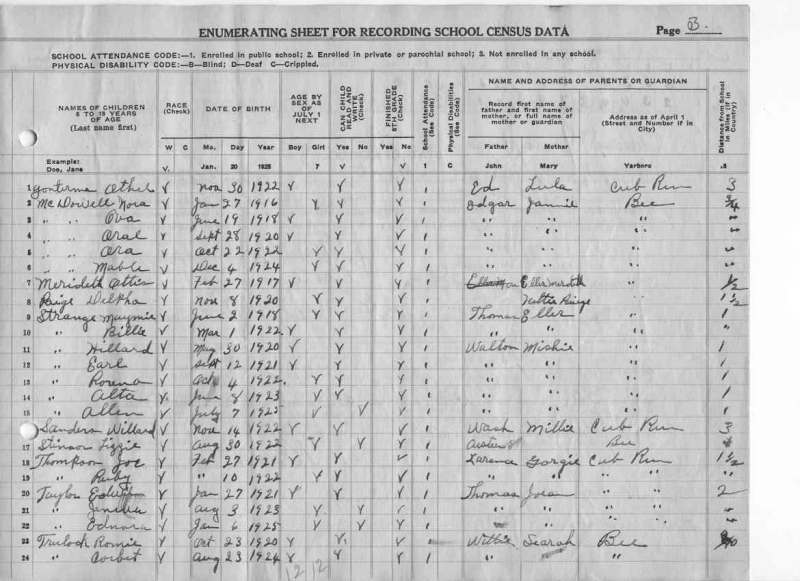 ENUMERATING SHEET FOR RECORDING SCHOOL CENSUS DATA Page B.
SCHOOL ATTENDANCE CODE:—1. Enrolled in public school; 2. Enrolled in private or parochial school; 3. Not enrolled in any school.
PHYSICAL DISABILITY CODE:—B—Blind; D—Deaf C—Crippled.
NAMES OF CHILDREN 6 TO 18 YEARS OF AGE (Last name first)
RACE (Check)
DATE OF BIRTH
AGE BY SEX AS OF JULY 1 NEXT
CAN CHILD READ AND WRITE (Check)
FINISHED 8TH GRADE (Check)
School Attendance (See Code)
Physical Disabilities (See Code)
NAME AND ADDRESS OF PARENTS OR GUARDIAN
Record first name of father and first name of mother, or full name of mother or guardian
Address as of April 1 (Street and Number if in City)
Distance from School in Miles (if in Country)
W C Mo. Day Year Boy Girl Yes No Yes No Father Mother
Example: Doe, Jane V. Jan. 20 1925 7 V V 1 C John Mary Yarboro .2
1 Athel V Nov 30 1922 V V V 1 Ed Lula Cub Run 3
2 McDowell Nora V Jan 27 1916 V V V 1 Edgar Jannie Bee 3/4
3 " " Ova V June 19 1918 V V V 1 " " " "
4 " " Oral V Sept 28 1920 V V V 1 " " " "
5 " " Ora V Oct 22 1922 V V V 1 " " " "
6 " " Mable V Dec 4 1924 V V V 1 " " " "
7 Merideth V Feb 27 1917 V V V 1 " 1/2
8 Paige Delpha V Nov 8 1920 V V V 1 Paige " 1 1/2
9 Strange Maymie V June 2 1918 V V V 1 Thomas Eller " 1
10 " Billie V Mar 1 1922 V V V 1 " " " 1
11 " Hillard V May 30 1920 V V V 1 Walton Mishie " " 1
12 " Earl V Sept 12 1921 V V V 1 " " " " 1
13 " V Oct 4 1922. V V V 1 " " " " 1
14 " Alta V June 8 1923 V V V 1 " " " " 1
15 " Allen V July 7 1925 V V V 1 " " " " 1
Sanders Willard V Nov 14 1922 V V V 1 Wash Millie Cub Run 3
17 Stinson Lizzie V Aug 30 1922 V V V 1 Bee
18 Thompson Joe V Feb 27 1921 V V V 1 Gorgie Cub Run 1 1/2
19 " Ruby V " 10 1922 V V V 1 " " " "
20 Taylor V Jan 27 1921 V V V 1 Thomas " " 2
21 " V Aug 3 1923 V V V 1 " " " "
22 " Ednora V Jan 6 1925 V V V 1 " " "
23 Romie V Oct 23 1920 V V V 1 Willie Searah Bee
24 " Corbet V Aug 23 1924 V V V 1 " " "
12 12